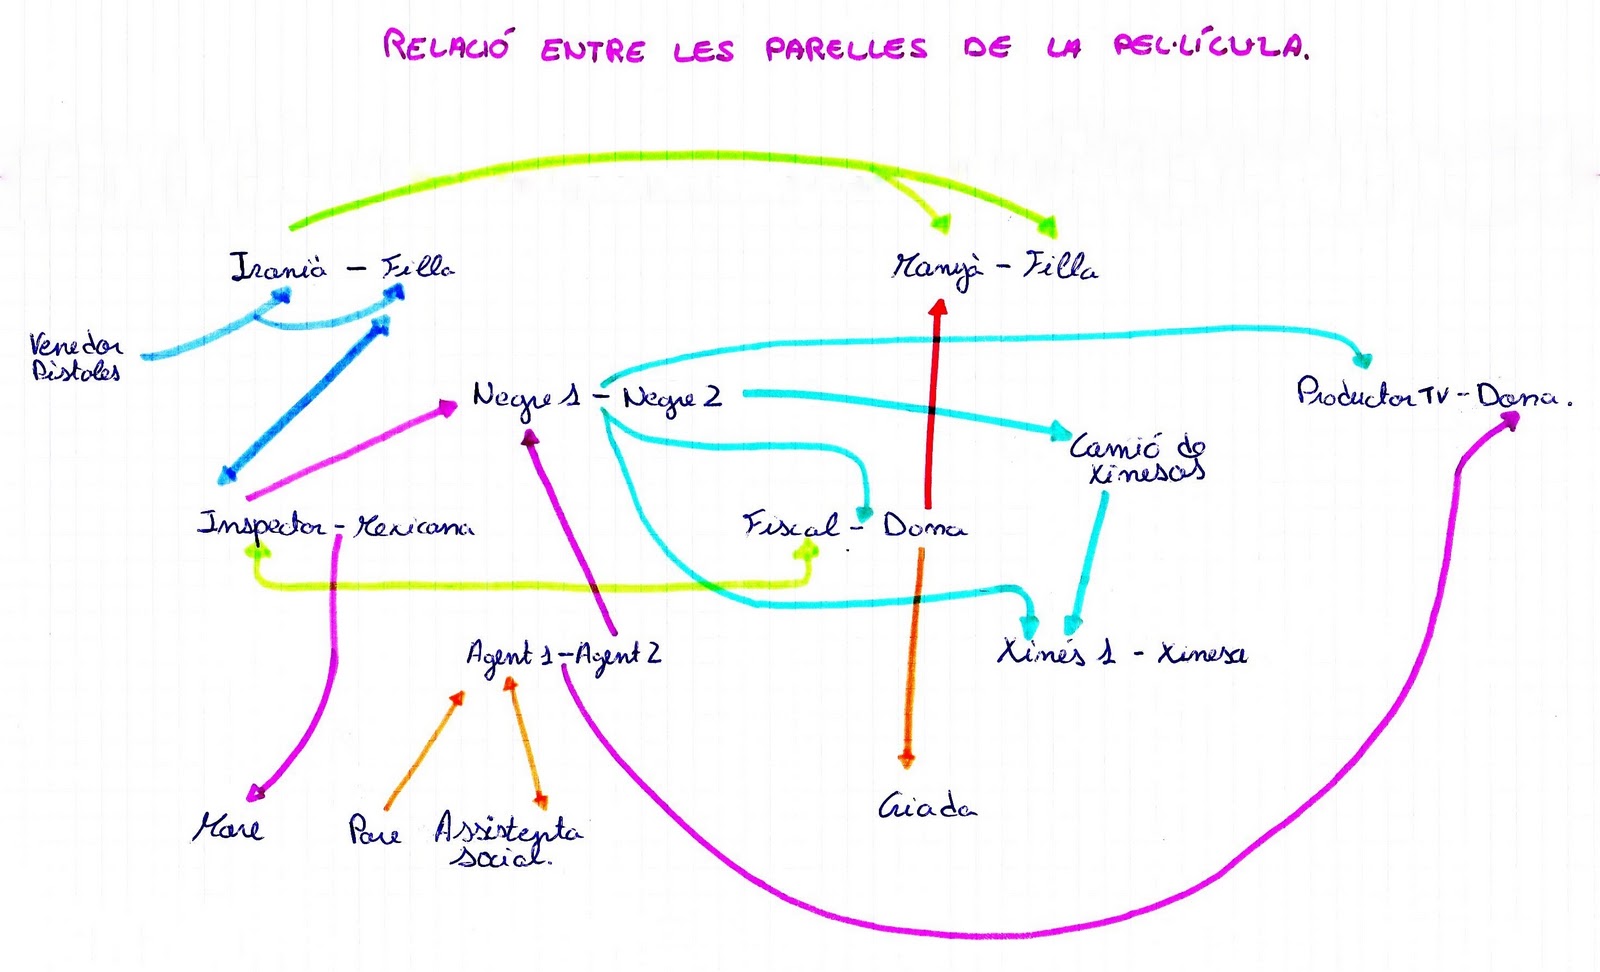 RELACIÓ ENTRE LES PARELLES DE LA PEL·LÍCULA.
Iranià - Filla
Manyà - Filla
Venedor
Pistoles
Negre 1 - Negre 2
Productor TV - Dona.
Camió de
Xinesos
Inspector - Mexicana
Fiscal - Dona
Agent 1 - Agent 2
Ximés 1 - Ximesa
Mare
Pare
Assistenta
social.
Criada